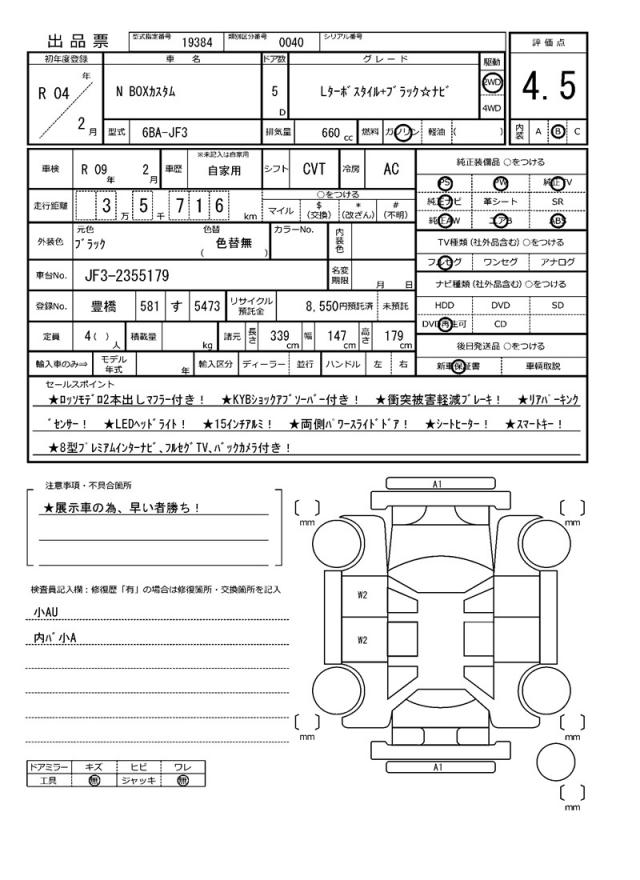 出品票 型式指定番号 19384 類別区分番号 0040 シリアル番号
評価点
4.5
内装 A B C
初年度登録 車名 ドア数 グレード 駆動
R 04 年 2 月 N BOXカスタム 5 D Lターボスタイル+ブラック☆ナビ 2WD 4WD
型式 6BA-JF3 排気量 660 cc 燃料 ガソリン 軽油 ( )
車検 R 09 年 2 月 車歴 ※未記入は自家用 自家用 シフト CVT 冷房 AC
走行距離 3 万 5 千 7 1 6 km ○をつける
マイル $ (交換) * (改ざん) # (不明)
外装色 元色 ブラック 色替 色替無 ( ) カラーNo. 内装色
車台No. JF3-2355179 名変期限 月 日
登録No. 豊橋 581 す 5473 リサイクル預託金 8,550円預託済 未預託
定員 4( ) 人 積載量 kg 諸元 長さ 339 cm 幅 147 cm 高さ 179 cm
輸入車のみ⇒ モデル年式 年 輸入区分 ディーラー 並行 ハンドル 左 右
純正装備品 ○をつける
PS PW 純正TV
純正ナビ 革シート SR
純正AW エアB ABS
TV種類 (社外品含む) ○をつける
フルセグ ワンセグ アナログ
ナビ種類 (社外品含む) ○をつける
HDD DVD SD
DVD再生可 CD
後日発送品 ○をつける
新車保証書 車輌取説
セールスポイント
★ロッソモデロ2本出しマフラー付き! ★KYBショックアブソーバー付き! ★衝突被害軽減ブレーキ! ★リアパーキング
センサー! ★LEDヘッドライト! ★15インチアルミ! ★両側パワースライドドア! ★シートヒーター! ★スマートキー!
★8型プレミアムインターナビ、フルセグTV、バックカメラ付き!
注意事項・不具合箇所
★展示車の為、早い者勝ち!
検査員記入欄:修復歴「有」の場合は修復箇所・交換箇所を記入
小AU
内バ小A
ドアミラー キズ ヒビ ワレ
工具 無 ジャッキ 無
A1
mm mm
W2
W2
mm mm
A1
mm